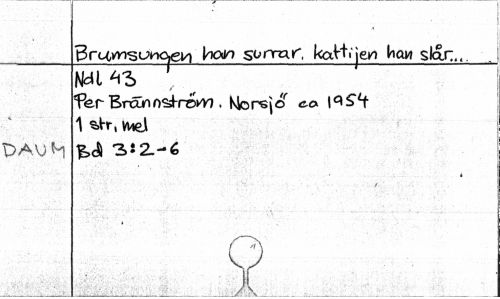 Brumsungen han surrar. kattijen han slår...
Ndl 43
Per Brännström. Norsjö ca 1954
1 str, mel
DAUM Bd 3:2-6